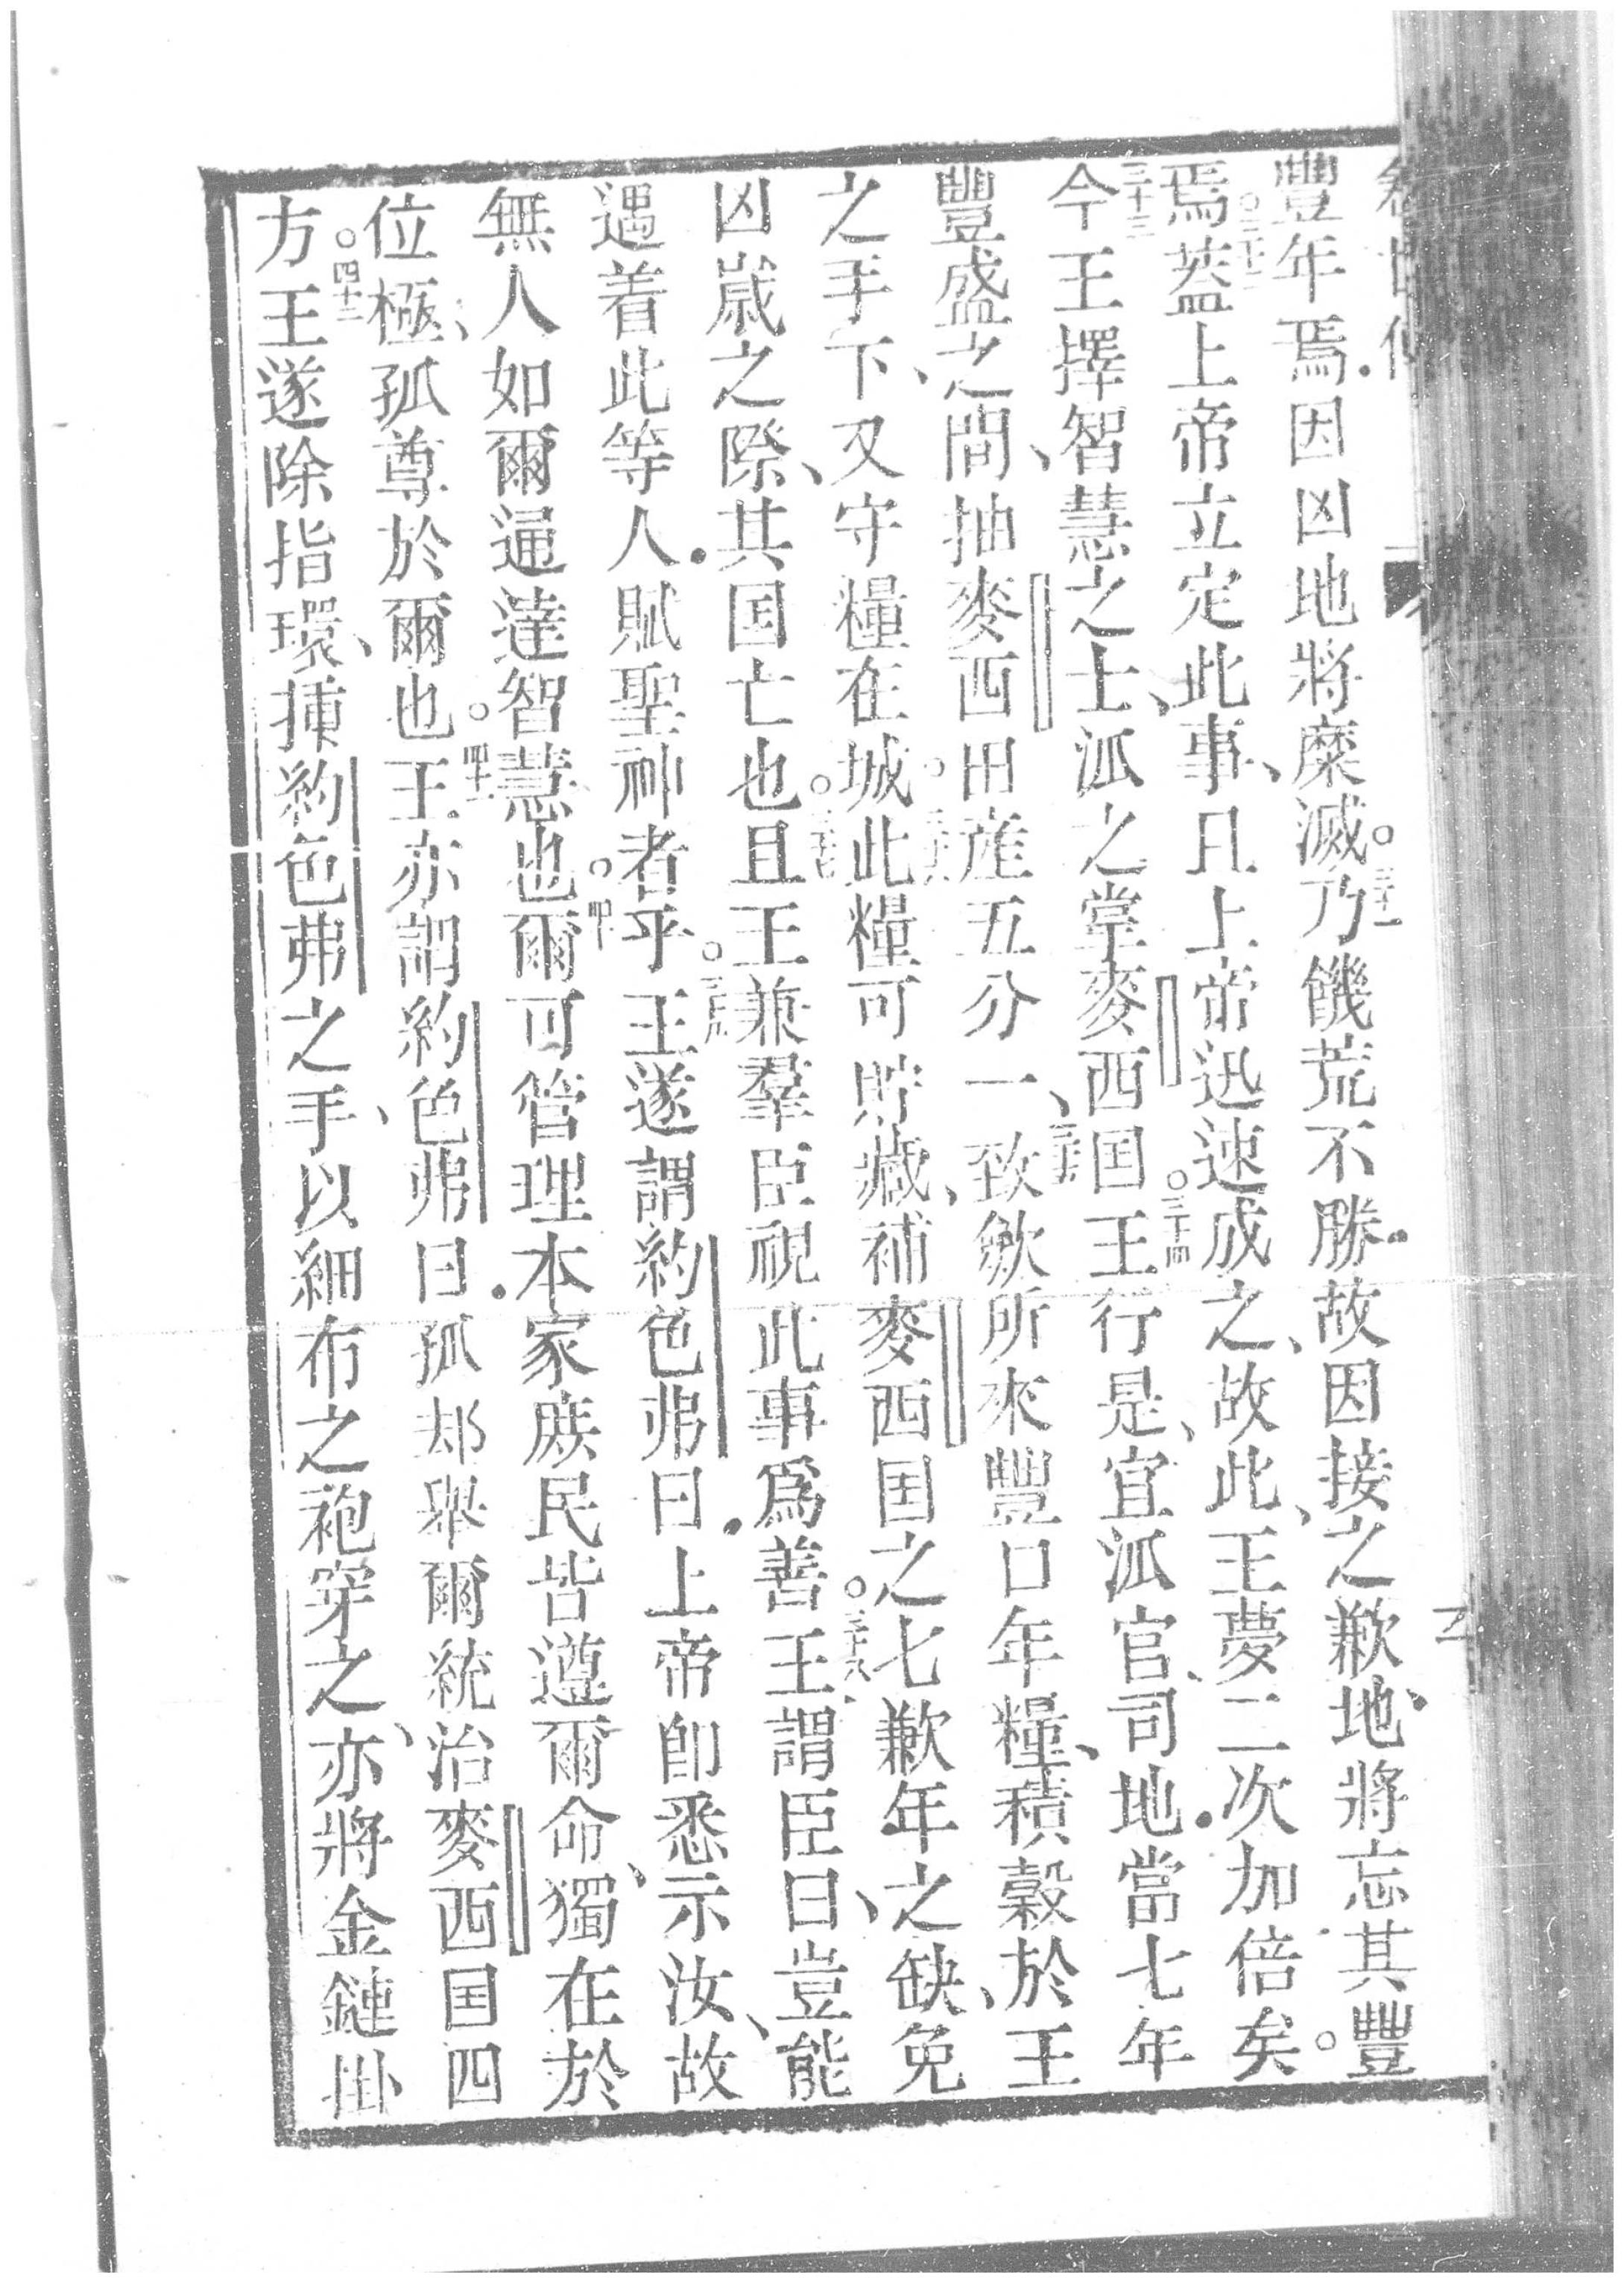 豐年焉.因凶地將糜滅。三十一乃饑荒不勝.故因接之歉地、將忘其豐
焉。三十二蓋上帝立定此事、且上帝迅速成之、故此、王夢二次加倍矣。
三十三今王擇智慧之士、派之掌麥西国。三十四王行是、宜派官、司地.當七年
豐盛之間、抽麥西田產五分一、三十五致斂所來豐口年糧、積穀於王
之手下、又守糧在城。三十六此糧可貯藏、補麥西国之七歉年之缺、免
凶歲之際、其国亡也。三十七且王兼羣臣視此事爲善。三十八王謂臣曰、豈能
遇着此等人.賦聖神者乎。三十九王遂謂約色弗曰.上帝卽悉示汝、故
無人如爾通達智慧也。四十爾可管理本家庶民皆遵爾命、獨在於
位極、孤尊於爾也。四十一王亦謂約色弗曰.孤却舉爾統治麥西国四
方。四十二王遂除指環、揀約色弗之手、以細布之袍穿之、亦將金鏈掛